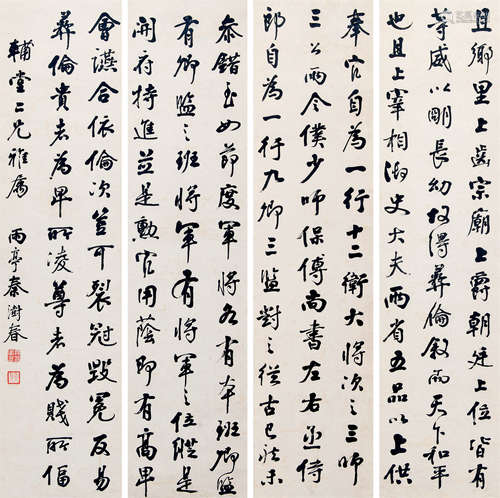 且鄉里上齒宗廟上爵朝廷上位皆有
等威以明長幼故得彝倫敘而天下和平
也且上宰相御史大夫兩省五品以上供
奉官自為一行十二衛大將次之三師
三公兩令僕少師保傅尚書左右丞侍
郎自為一行九卿三監對之從古已然未
叅錯至如節度軍將各有本班卿監
有卿監之班將軍有將軍之位縱是
開府特進並是勳官用蔭即有高卑
會讌合依倫次豈可裂冠毀冕反易
彝倫貴者為卑所凌尊者為賤所偪
輔堂二兄雅屬 雨亭秦澍春